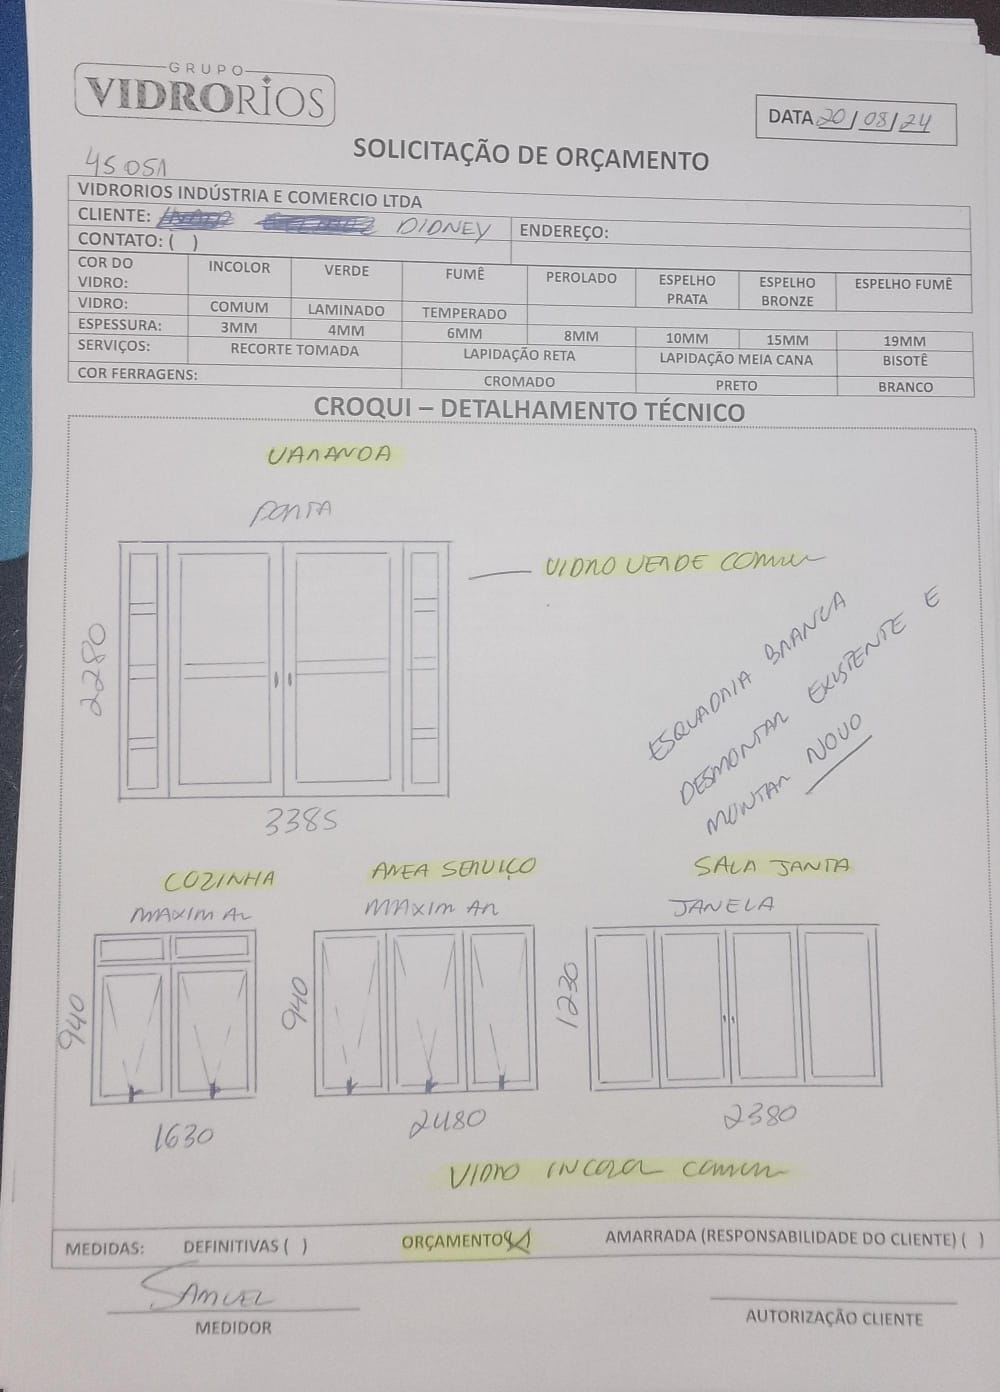 GRUPO
VIDRORIOS
DATA 20/08/24
SOLICITAÇÃO DE ORÇAMENTO
45051
VIDRORIOS INDÚSTRIA E COMERCIO LTDA
CLIENTE: DIDNEY ENDEREÇO:
CONTATO: ( )
COR DO VIDRO: INCOLOR VERDE FUMÊ PEROLADO ESPELHO PRATA ESPELHO BRONZE ESPELHO FUMÊ
VIDRO: COMUM LAMINADO TEMPERADO
ESPESSURA: 3MM 4MM 6MM 8MM 10MM 15MM 19MM
SERVIÇOS: RECORTE TOMADA LAPIDAÇÃO RETA LAPIDAÇÃO MEIA CANA BISOTÊ
COR FERRAGENS: CROMADO PRETO BRANCO
CROQUI – DETALHAMENTO TÉCNICO
VARANDA
PORTA
VIDRO VERDE COMUM
2280
3385
ESQUADRIA BRANCA
DESMONTAR EXISTENTE E
MONTAR NOVO
COZINHA
MAXIM AR
940
1630
AREA SERVIÇO
MAXIM AR
940
2480
SALA JANTA
JANELA
1230
2380
VIDRO INCOLOR COMUM
MEDIDAS: DEFINITIVAS ( ) ORÇAMENTO (X) AMARRADA (RESPONSABILIDADE DO CLIENTE) ( )
SAMUEL
MEDIDOR
AUTORIZAÇÃO CLIENTE